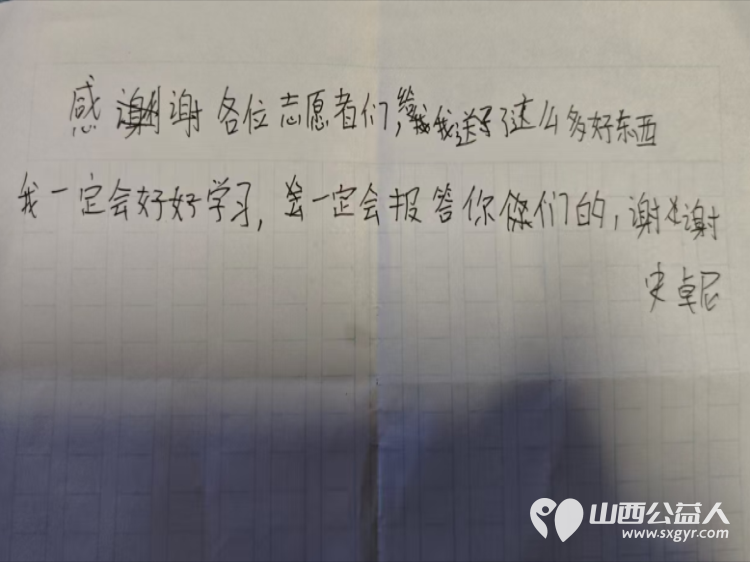 感谢各位志愿者们,给我送了这么多好东西
我一定会好好学习,一定会报答你们的,谢谢
宋卓尼
山西公益人
www.sxgyr.com